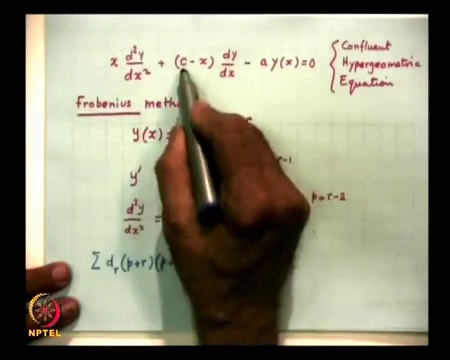 x d²y/dx² + (c - x) dy/dx - a y(x) = 0 { Confluent
Hypergeometric
Equation
Frobenius
y(x) =
r
y'
r-1
d²y/dx² =
p+r-2
Σ d_r (p+r)(p
NPTEL